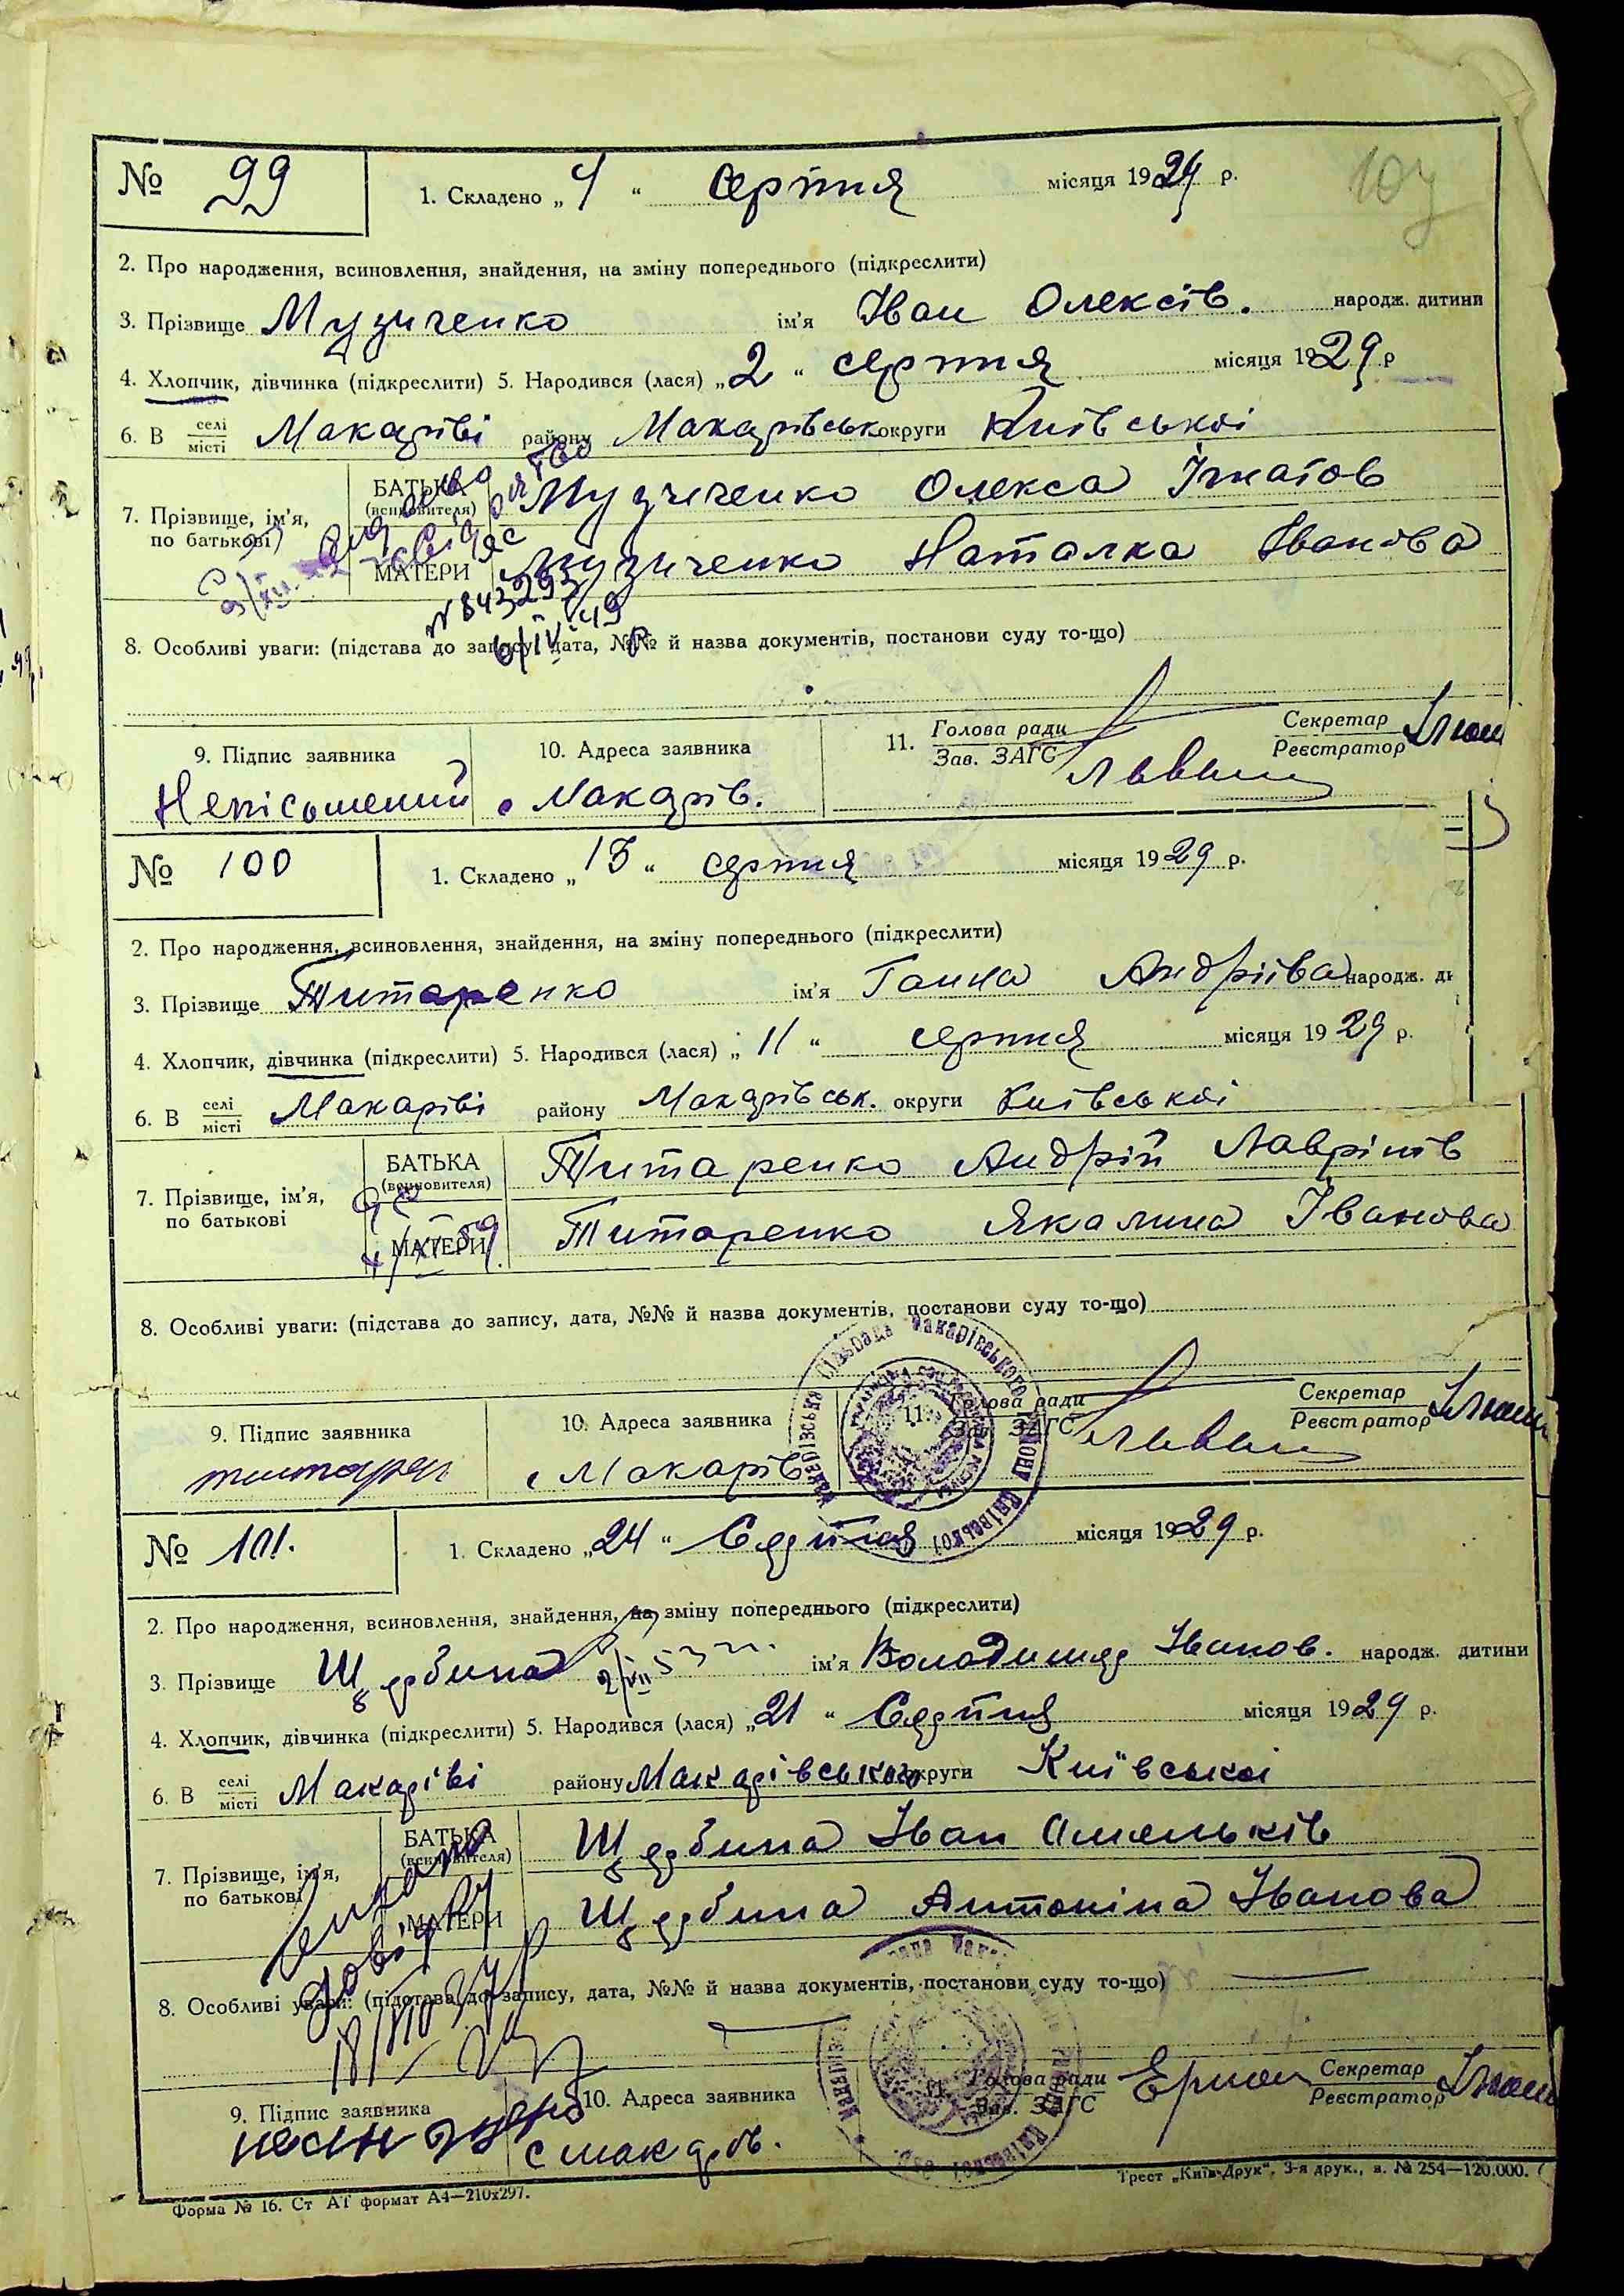 № 99 1. Складено „ 4 “ серпня місяця 1929 р. 107
2. Про народження, всиновлення, знайдення, на зміну попереднього (підкреслити)
3. Прізвище Музиченко ім'я Іван Олексів. народж. дитини
4. Хлопчик, дівчинка (підкреслити) 5. Народився (лася) „ 2 “ серпня місяця 1929 р
6. В селі місті Макарові району Макарівськ округи Київської
7. Прізвище, ім'я, по батькові
БАТЬКА (всиновителя) Музиченко Олекса Ігнатов
МАТЕРИ Музиченко Наталка Іванова
№ 843293
6/IV 49 р
8. Особливі уваги: (підстава до запису, дата, №№ й назва документів, постанови суду то-що)
9. Підпис заявника 10. Адреса заявника 11. Голова ради Зав. ЗАГС Секретар Реєстратор
Неписьмений с Макарів.
№ 100 1. Складено „ 13 “ серпня місяця 1929 р.
2. Про народження, всиновлення, знайдення, на зміну попереднього (підкреслити)
3. Прізвище Титаренко ім'я Ганна Андріїва народж. ди
4. Хлопчик, дівчинка (підкреслити) 5. Народився (лася) „ 11 “ серпня місяця 1929 р.
6. В селі місті Макарові району Макарівськ. округи Київської
7. Прізвище, ім'я, по батькові
БАТЬКА (всиновителя) Титаренко Андрій Лаврінів
МАТЕРИ Титаренко Якалина Іванова
8. Особливі уваги: (підстава до запису, дата, №№ й назва документів, постанови суду то-що)
9. Підпис заявника 10. Адреса заявника 11. Голова ради Зав. ЗАГС Секретар Реєстратор
с Макарів
Макарівська сільрада Макарівського району Київської
№ 101. 1. Складено „ 24 “ Серпня місяця 1929 р.
2. Про народження, всиновлення, знайдення, на зміну попереднього (підкреслити)
3. Прізвище Щербина ім'я Володимир Іванов. народж. дитини
4. Хлопчик, дівчинка (підкреслити) 5. Народився (лася) „ 21 “ Серпня місяця 1929 р.
6. В селі місті Макарові району Макарівського округи Київської
7. Прізвище, ім'я, по батькові
БАТЬКА (всиновителя) Щербина Іван Омельків
МАТЕРИ Щербина Антоніна Іванова
8. Особливі уваги: (підстава до запису, дата, №№ й назва документів, постанови суду то-що)
9. Підпис заявника 10. Адреса заявника 11. Голова ради Зав. ЗАГС Секретар Реєстратор
с Макарів.
Форма № 16. Ст АГ формат А4—210х297. Трест „Київ-Друк“, 3-я друк., з. № 254—120.000.